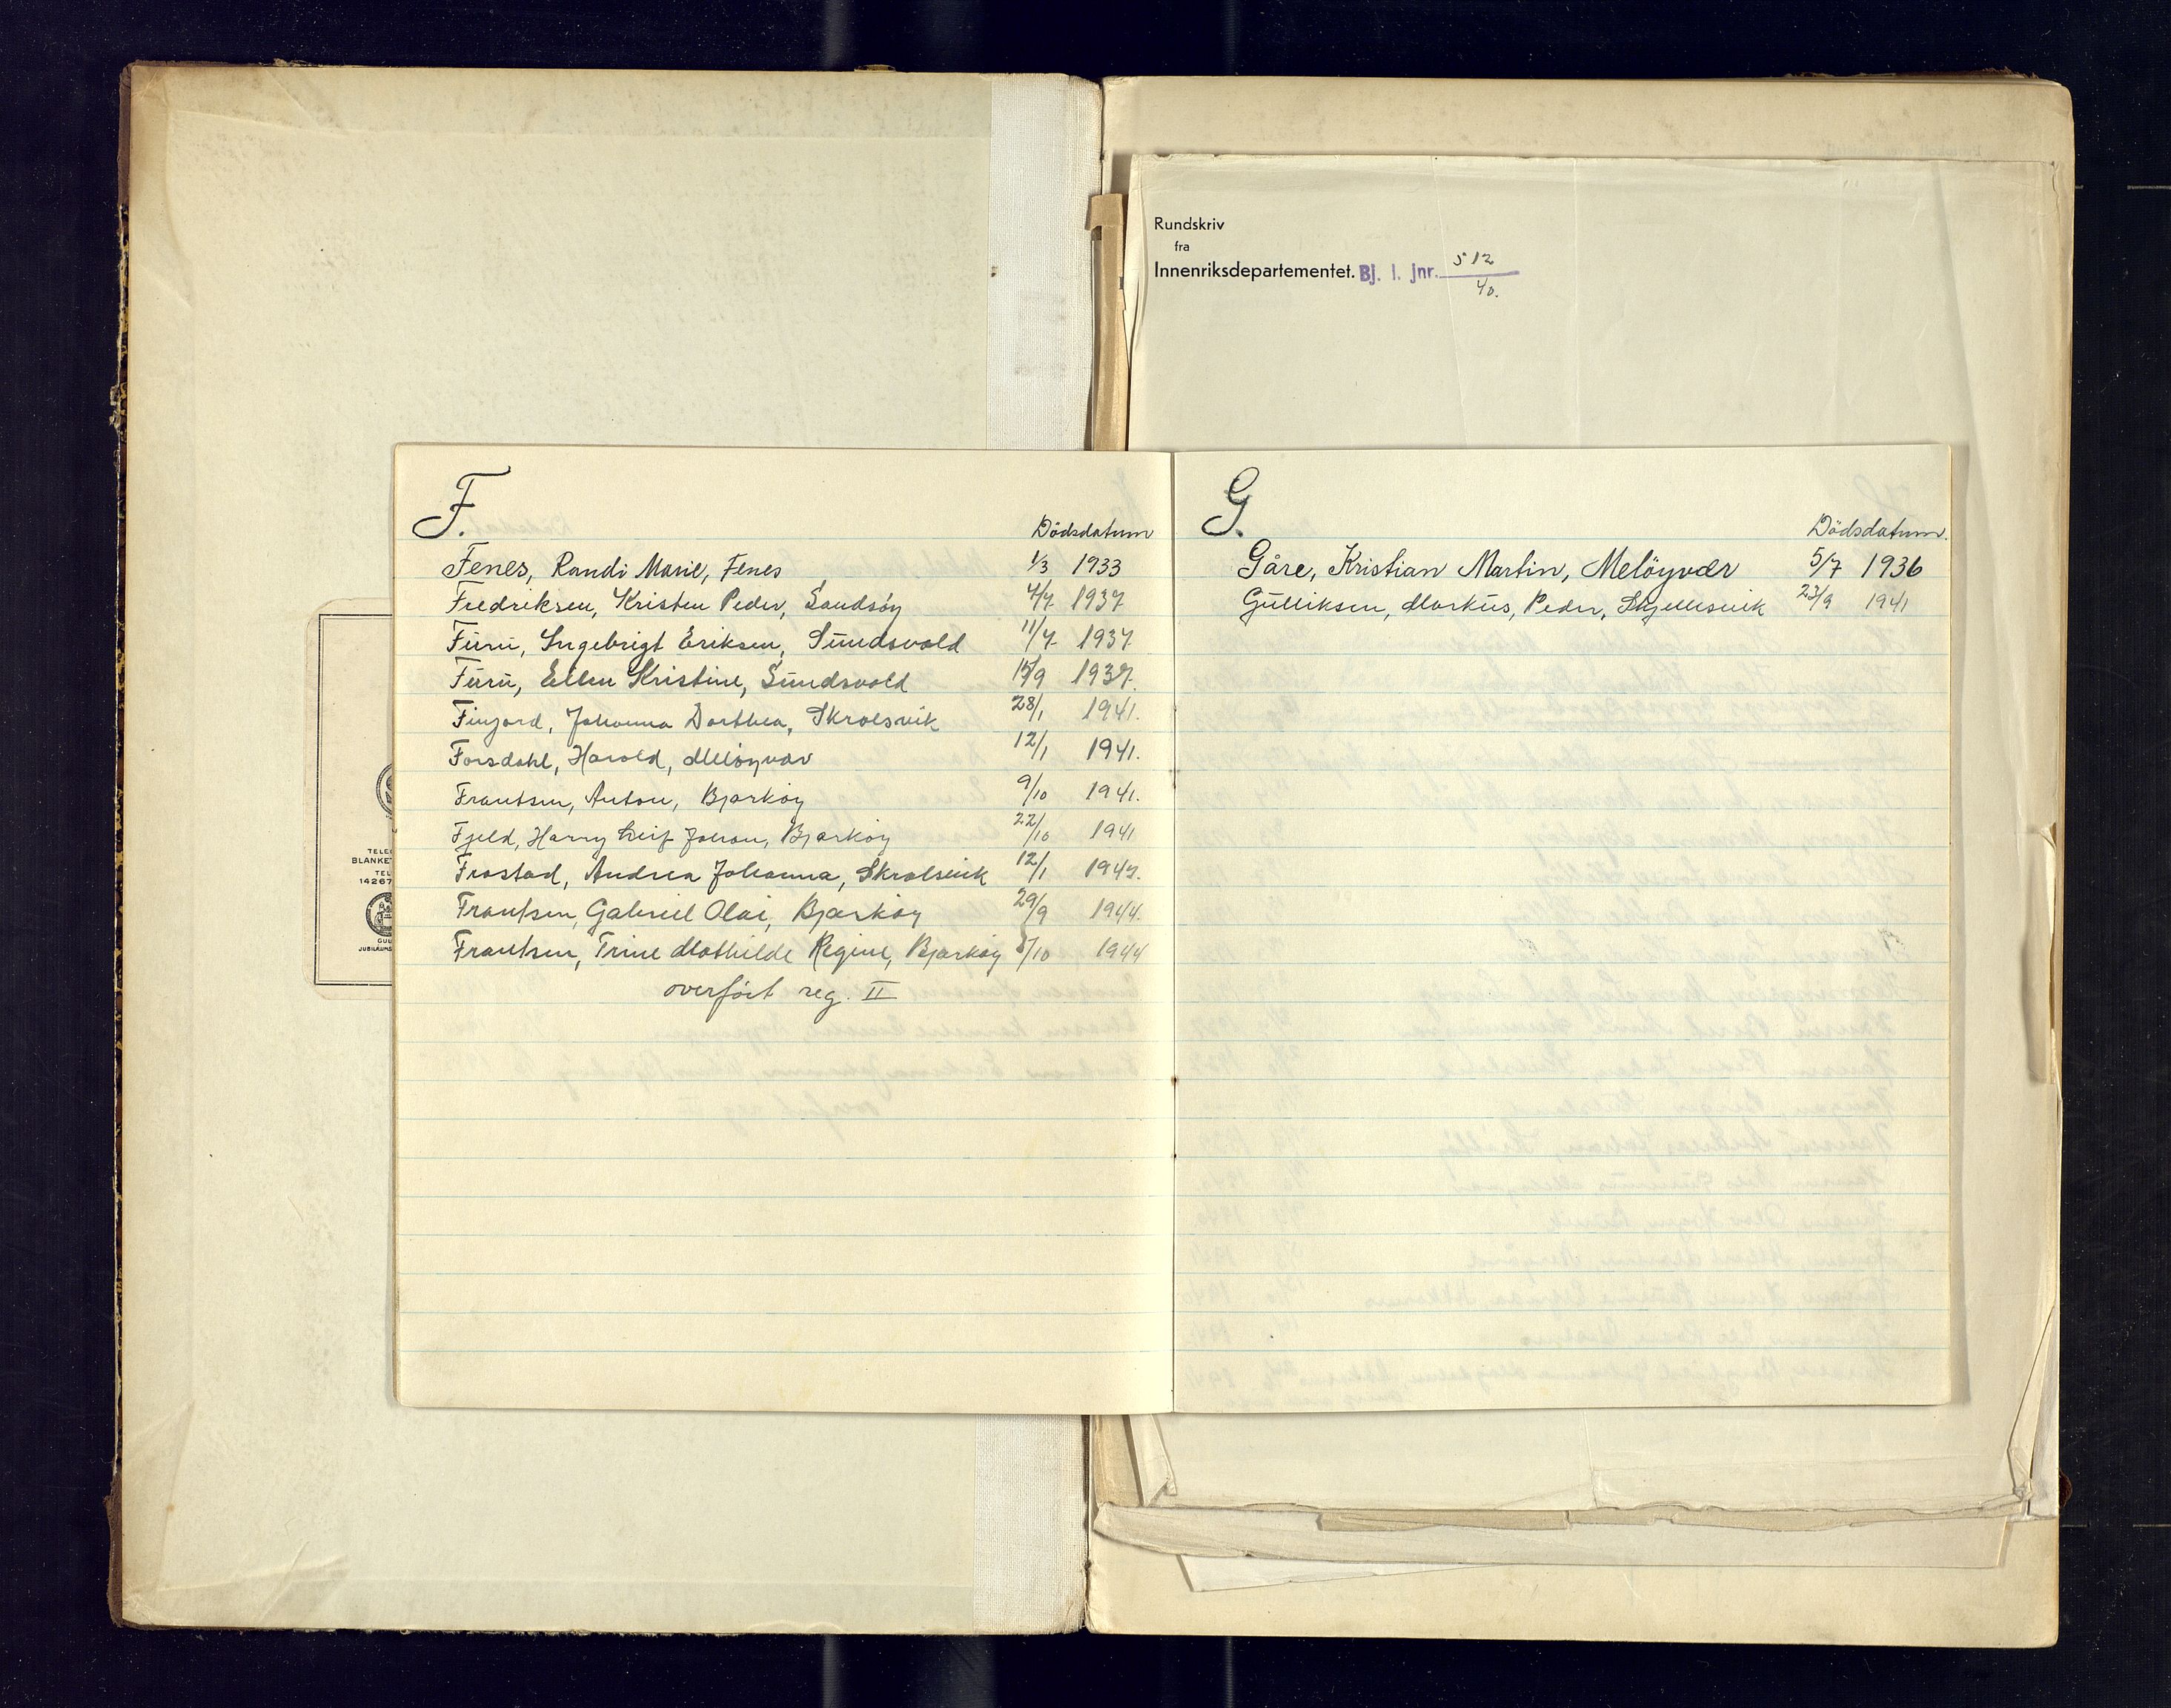 Rundskriv
fra
Innenriksdepartementet. Bj. l. jnr. 512/40.
F.
Dödsdatum
Fenes, Randi Marie, Fenes 1/3 1933
Fredriksen, Kristen Peder, Sandsöy 4/7 1937
Furü, Ingebrigt Eriksen, Sündsvold 11/7 1937
Fürü, Ellen Kristine, Sündsvold 15/9 1937.
Finjord, Johanna Dorthea, Skrolsvik 28/1 1941.
Forsdahl, Harald, Melöyvær 12/1 1941.
Frantsen, Anton, Bjarköy 9/10 1941.
Fjeld, Harry Leif Johan, Bjarköy 22/10 1941
Frostad, Andrea Johanna, Skrolsvik 12/1
Frantsen, Gabriel Olai, Bjarköy 29/9 1944.
Frantsen, Trine Mathilde Regine, Bjarköy /10 1944
overfört reg. II
G.
Dödsdatum.
Gåre, Kristian Martin, Melöyvær 5/7 1936
Gülliksen, Marküs, Peder, Skjellesvik 23/9 1941
TELE
BLANKE
TEL
14267
GUL
JUBILÆUMS